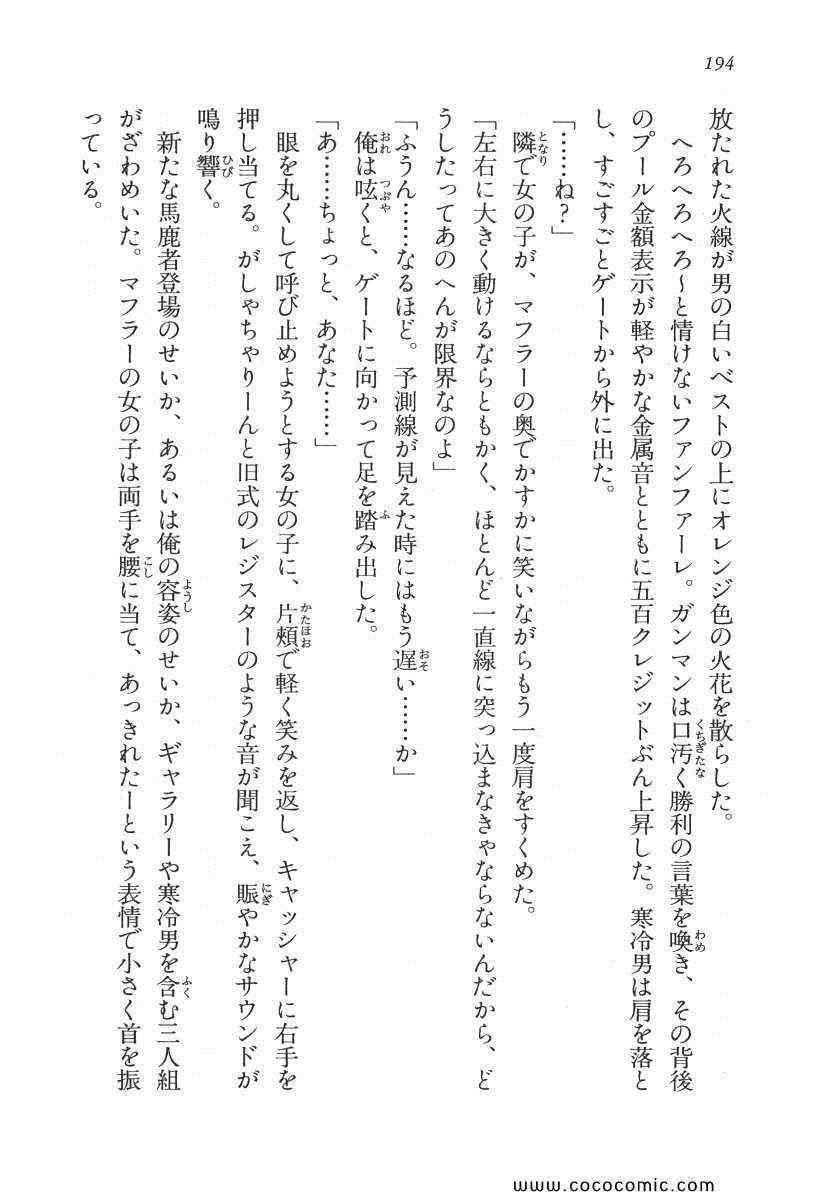 194
放たれた火線が男の白いベストの上にオレンジ色の火花を散らした。
へろへろへろ〜と情けないファンファーレ。ガンマンは口汚く勝利の言葉を喚き、その背後
のプール金額表示が軽やかな金属音とともに五百クレジットぶん上昇した。寒冷男は肩を落と
し、すごすごとゲートから外に出た。
「……ね？」
隣で女の子が、マフラーの奥でかすかに笑いながらもう一度肩をすくめた。
「左右に大きく動けるならともかく、ほとんど一直線に突っ込まなきゃならないんだから、ど
うしたってあのへんが限界なのよ」
「ふうん……なるほど。予測線が見えた時にはもう遅い……か」
俺は呟くと、ゲートに向かって足を踏み出した。
「あ……ちょっと、あなた……」
眼を丸くして呼び止めようとする女の子に、片頬で軽く笑みを返し、キャッシャーに右手を
押し当てる。がしゃちゃりーんと旧式のレジスターのような音が聞こえ、賑やかなサウンドが
鳴り響く。
新たな馬鹿者登場のせいか、あるいは俺の容姿のせいか、ギャラリーや寒冷男を含む三人組
がざわめいた。マフラーの女の子は両手を腰に当て、あっきれたーという表情で小さく首を振
っている。
www.cococomic.com